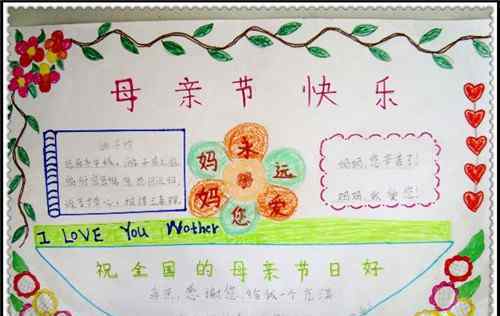 母亲节快乐
游子吟
慈母手中线，游子身上衣，
临行密密缝，意恐迟迟归，
谁言寸草心，报得三春晖
永
妈 远
妈 爱
您
妈妈，您辛苦了！
妈妈我爱您！
I LOVE You Mother
祝全国的母亲节日好
母亲，感谢您，给我一个充满